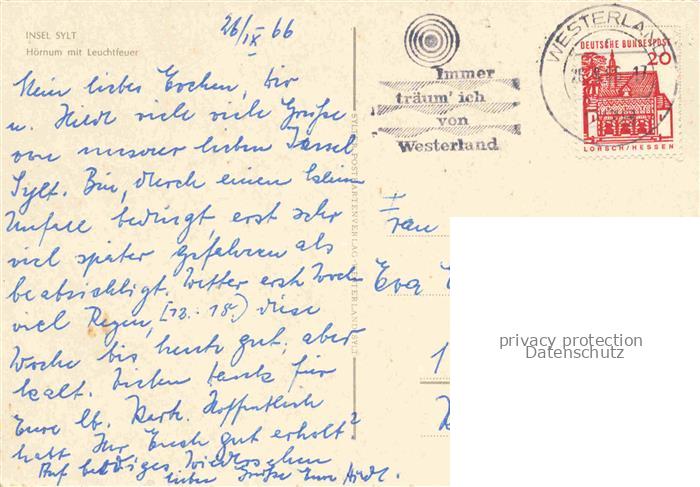 INSEL SYLT
Hörnum mit Leuchtfeuer
26/IX 66
Mein liebes Evchen, Dir
u. Heidi viele viele Grüße
von unserer lieben Insel
Sylt. Bin, durch einen kleinen
Unfall bedingt, erst sehr
viel später gefahren als
beabsichtigt. Wetter erste Woche
viel Regen, (13.-18.) diese
Woche bis heute gut, aber
kalt. Lieben Dank für
Eure lb. Karte. Hoffentlich
habt Ihr Euch gut erholt?
Auf baldiges Wiedersehen
liebe Grüße Eure
SYLTER POSTKARTENVERLAG WESTERLAND SYLT
Immer
träum' ich
von
Westerland
WESTERLAND
DEUTSCHE BUNDESPOST
20
LORSCH/HESSEN
Frau
Eva
1
privacy protection
Datenschutz